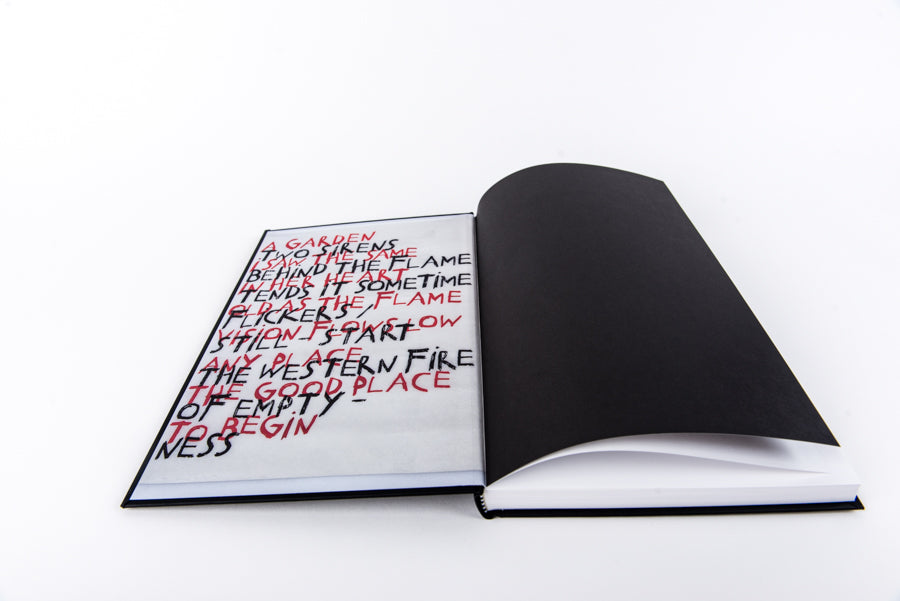 A GARDEN
TWO SiRENS
I SAW THE SAME
BEHiND THE FLAME
IN HER HEART
TENDS IT SOMETiME
OLD AS THE FLAME
FLICKERS /
VISION FLOWS LOW
STILL - START
ANY PLACE
THE WESTERN FiRE
THE GOOD PLACE
OF EMPTY -
TO BEGiN
NESS